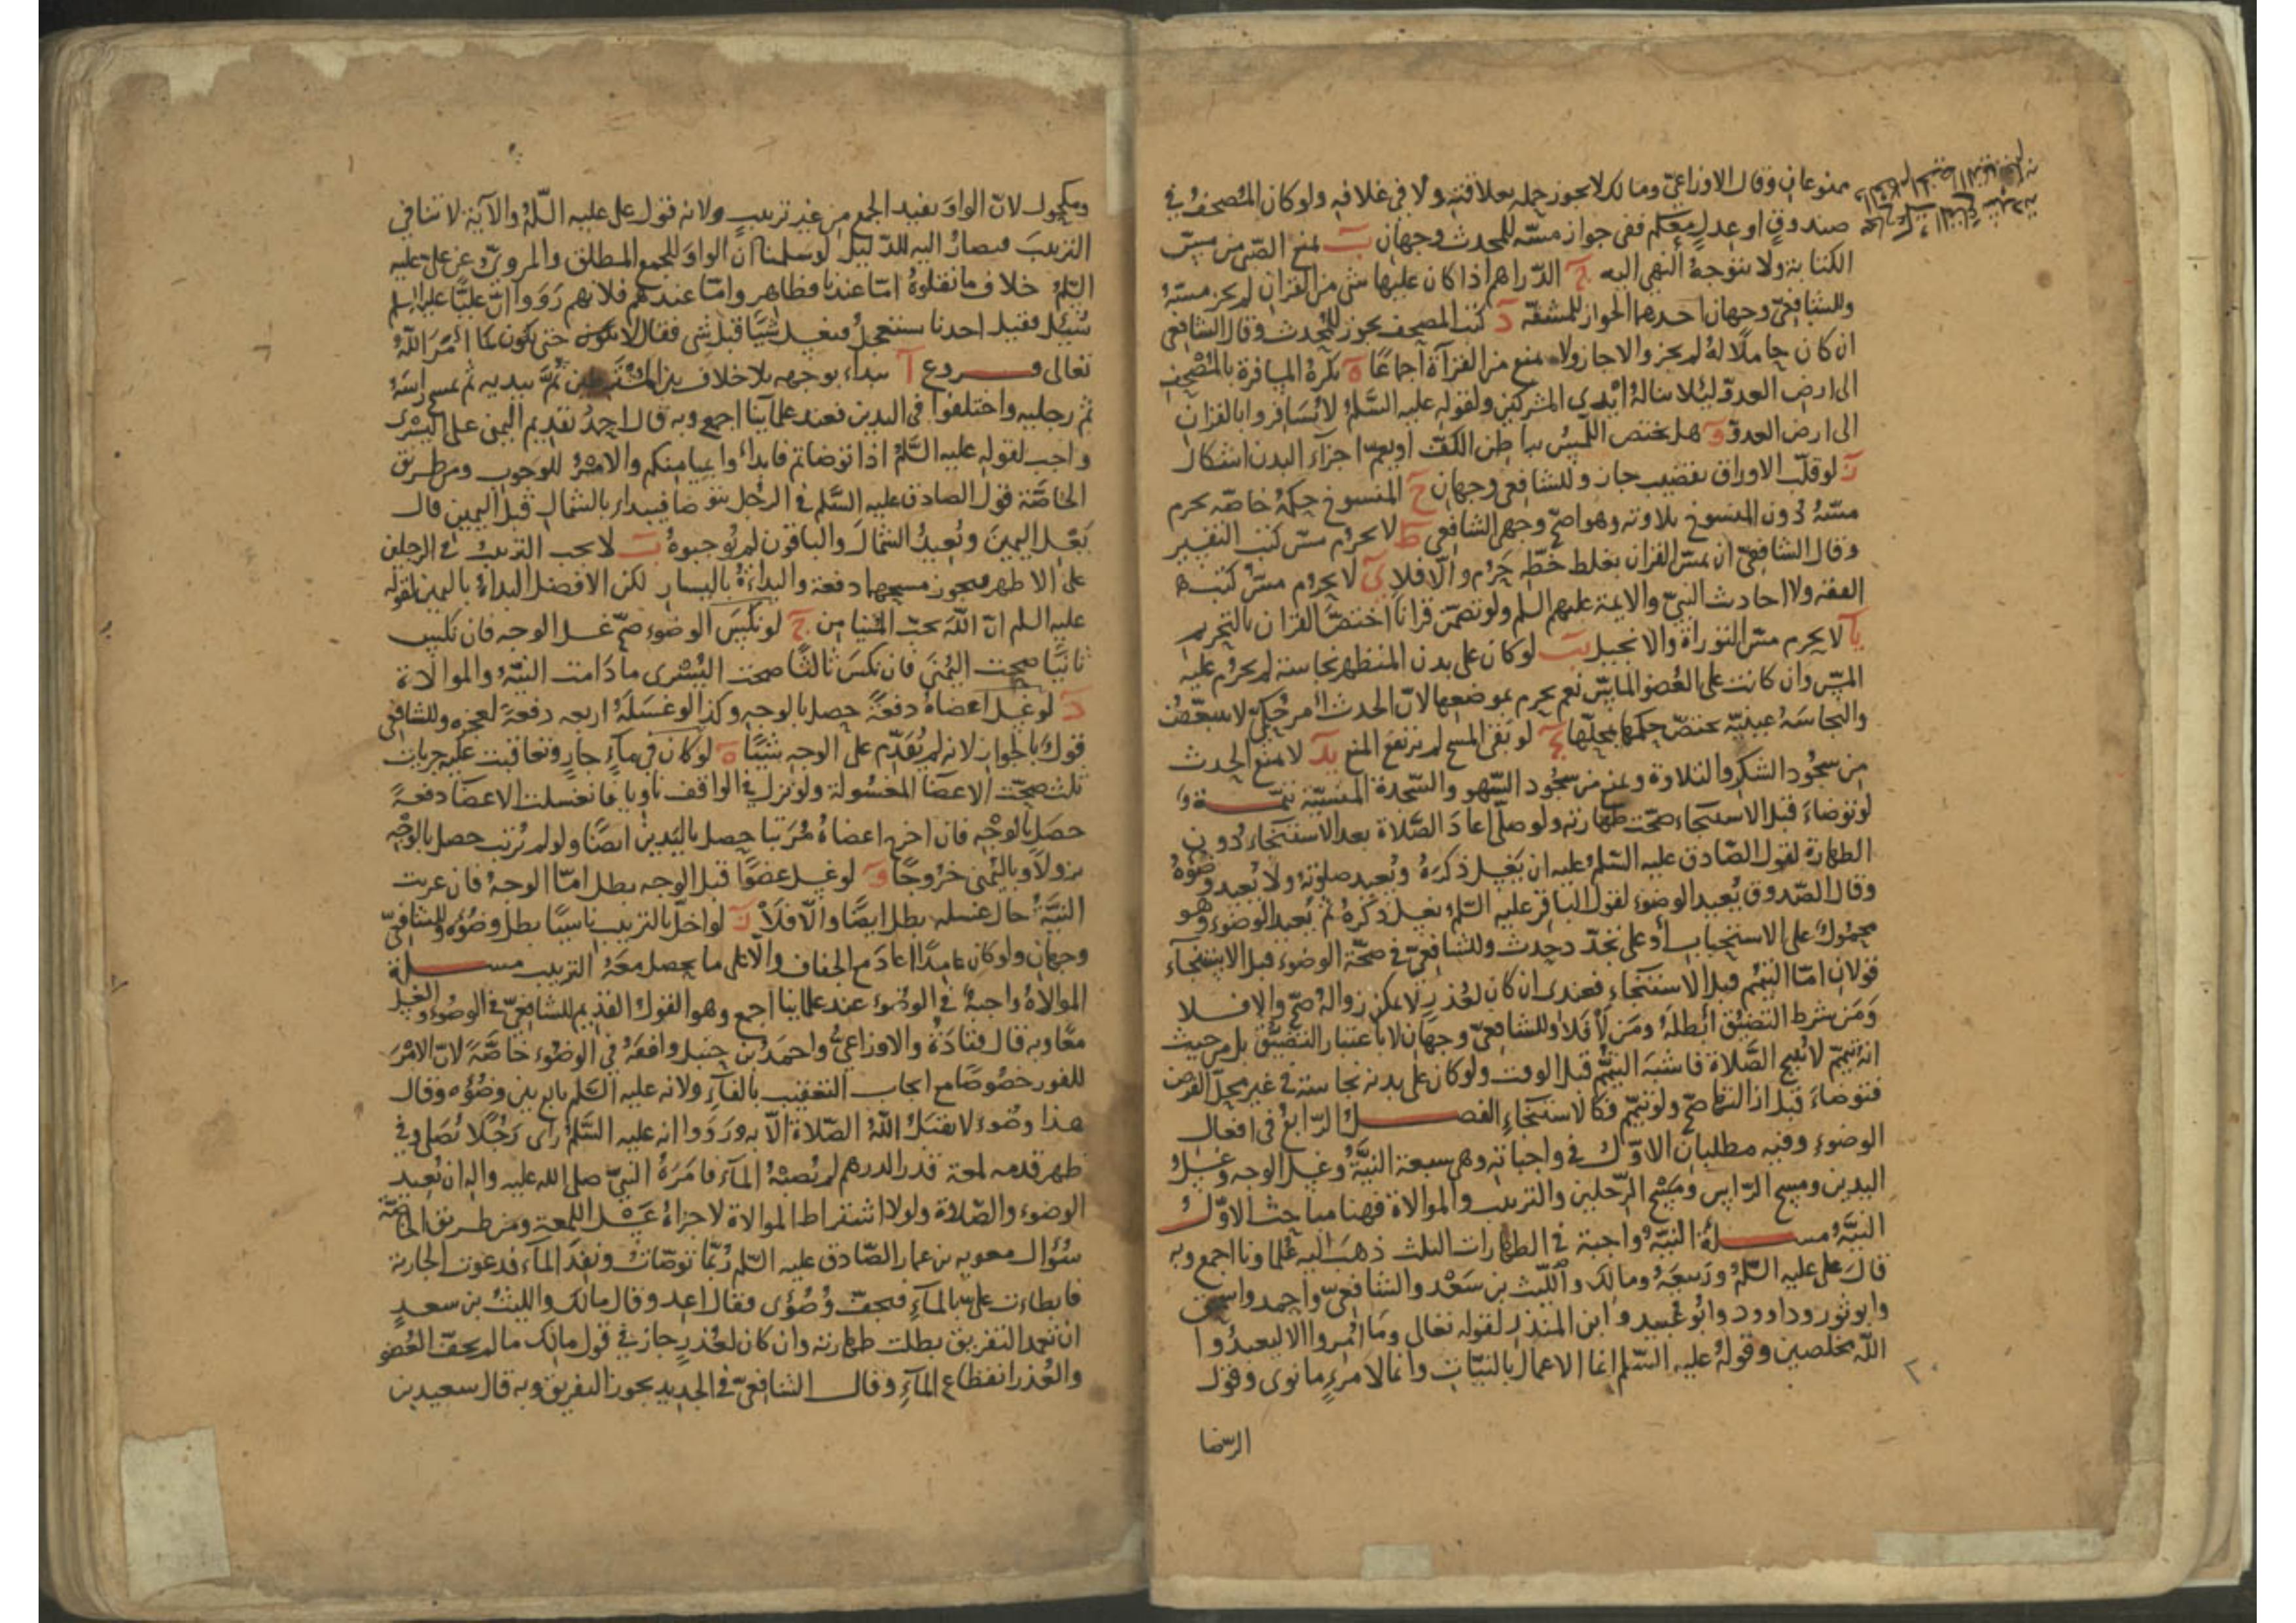 ممنوعان وقال الاوزاعي ومالك لا يجوز حمله بعلاقته ولا في غلافه ولو كان المصحف في
صندوق او عدل معكم ففي جواز مسه للمحدث وجهان ب يمنع الصبي من مس
الكتابة ولا يتوجه النهي اليه ج الدراهم اذا كان عليها شي من القران لم يجز مسه
وللشافعي وجهان احدهما الجواز للمشقة د كتب المصحف يجوز للمحدث وقال الشافعي
ان كان حاملا له لم يجز والا جاز ولا يمنع من القرآة اجماعا ه يكره المسافرة بالمصحف
الى ارض العدو لئلا تناله ايدي المشركين ولقوله عليه السلم لا تسافروا بالقران
الى ارض العدو و هل يختص اللمس بباطن الكف او يعم اجزاء البدن اشكال
ز لو قلب الاوراق بقضيب جاز وللشافعي وجهان ح المنسوخ حكمه خاصة يحرم
مسه دون المنسوخ تلاوته وهو اصح وجهي الشافعي ط لا يحرم مس كتب التفسير
وقال الشافعي ان تميز القران بغلط خطه حرم والا فلا ي لا يحرم مس كتب
الفقه ولا احاديث النبي والايمة عليهم السلم ولو تضمن قرانا اختص القران بالتحريم
يا لا يحرم مس التوراة والانجيل يب لو كان على بدن المتطهر نجاسة لم يحرم عليه
المس وان كانت على العضو الماس نعم يحرم بموضعها لان الحدث امر حكمي لا يتبعض
والنجاسة عينية يختص حكمها بمحلها يج لو نفى المسح لم يرتفع المنع يد لا يمنع الحدث
من سجود الشكر والتلاوة ويمنع من سجود السهو والسجدة المنسية تتمة
لو توضاء قبل الاستنجاء صحت طهارته ولو صلى اعاد الصلاة بعد الاستنجاء دون
الطهارة لقول الصادق عليه السلم عليه ان يغسل ذكره ويعيد صلوته ولا يعيد وضوه
وقال الصدوق يعيد الوضوء لقول الباقر عليه السلم يغسل ذكره ثم يعيد الوضوء وهو
محمول على الاستحباب او على تجدد حدث وللشافعي في صحة الوضوء قبل الاستنجاء
قولان اما التيمم قبل الاستنجاء فعندي ان كان لعذر لا يمكن زواله صح والا فلا
ومن شرط التضيق ابطله ومن لا فلا وللشافعي وجهان لا باعتبار التضيق بل من حيث
انه تيمم لا يبيح الصلاة فاشبه التيمم قبل الوقت ولو كان على بدنه نجاسة في غير محل الفرض
فتوضاء قبل ازالتها صح ولو تيمم فكالاستنجاء الفصل الرابع في افعال
الوضوء وفيه مطلبان الاول في واجباته وهي سبعة النية وغسل الوجه وغسل
اليدين ومسح الراس ومسح الرجلين والترتيب والموالاة فههنا مباحث الاول
النية مسلة النية واجبة في الطهارات الثلث ذهب اليه علماونا اجمع وبه
قال علي عليه السلم وربيعة ومالك والليث بن سعد والشافعي واحمد واسحق
وابو ثور وداوود وابو عبيد وابن المنذر لقوله تعالى وما امروا الا ليعبدوا
الله مخلصين وقوله عليه السلم انما الاعمال بالنيات وانما لامرئ ما نوى وقول
الرضا
٢٠
ومكحول لان الواو يفيد الجمع من غير ترتيب ولانه قول علي عليه السلم والآية لا تنافي
الترتيب فيصار اليه للدليل لو سلمنا ان الواو للجمع المطلق والمروي عن علي عليه
السلم خلاف ما نقلوه اما عندنا فظاهر واما عندهم فلانهم رووا ان عليا عليه السلم
سئل فقيل احدنا يستعجل فيغسل شيا قبل شي فقال لا حتى يكون كما امر الله
تعالى فروع ا يبداء بوجهه بلا خلاف بين ثم بيديه ثم يمسح راسه
ثم رجليه واختلفوا في اليدين فعند علمآينا اجمع وبه قال احمد تقديم اليمنى على اليسرى
واجب لقوله عليه السلم اذا توضاتم فابداوا بميامنكم والامر للوجوب ومن طريق
الخاصة قول الصادق عليه السلم في الرجل يتوضا فيبداء بالشمال قبل اليمين قال
يغسل اليمين ويعيد الشمال والباقون لم يوجبوه ب لا يجب الترتيب في الرجلين
على الاظهر فيجوز مسحهما دفعة والبداءة باليسار لكن الافضل البداة باليمين لقوله
عليه السلم ان الله يحب التيامن ج لو نكس الوضوء صح غسل الوجه فان نكس
ثانيا صحت اليمنى فان نكس ثالثا صحت اليسرى ما دامت النية والموالاة
د لو غسل اعضاه دفعة حصل بالوجه وكذا لو غسله اربعة دفعة لعجزه وللشافعي
قول بالجواز لانه لم يقدم على الوجه شيئا ه لو كان في ماء جار وتعاقبت عليه جريات
ثلث صحت الاعضا المغسولة ولو نزل في الواقف ناويا فانغسلت الاعضا دفعة
حصل بالوجه فان اخرج اعضاه مرتبا حصل باليدين ايضا ولو لم يرتب حصل بالوجه
نزولا وباليمنى خروجا و لو غسل عضوا قبل الوجه بطل اما الوجه فان عزبت
النية حال غسله بطل ايضا والا فلا ز لو اخل بالترتيب ناسيا بطل وضوه وللشافعي
وجهان ولو كان عامدا اعاد مع الجفاف والا على ما يحصل معه الترتيب مسلة
الموالاة واجبة في الوضوء عند علماينا اجمع وهو القول القديم للشافعي في الوضوء والغسل
معا وبه قال قتادة والاوزاعي واحمد بن حنبل وافقه في الوضوء خاصة لان الامر
للفور خصوصا مع ايجاب التعقيب بالفآء ولانه عليه السلم تابع بين وضوه وقال
هذا وضوء لا يقبل الله الصلاة الا به ورووا انه عليه السلم راى رجلا يصلي وفي
ظهر قدمه لمعة قدر الدرهم لم يصبه المآء فامره النبي صلى الله عليه واله ان يعيد
الوضوء والصلاة ولولا اشتراط الموالاة لاجزاه غسل اللمعة ومن طريق الخاصة
سؤال معويه بن عمار الصادق عليه السلم ربما توضات ونفد المآء فدعوت الجارية
فابطاءت علي بالمآء فيجف وضوئي فقال اعد وقال مالك والليث بن سعد
ان تعمد التفريق بطلت طهارته وان كان لعذر جاز في قول مالك ما لم يجف العضو
والعذر انقطاع المآء وقال الشافعي في الجديد يجوز التفريق وبه قال سعيد بن